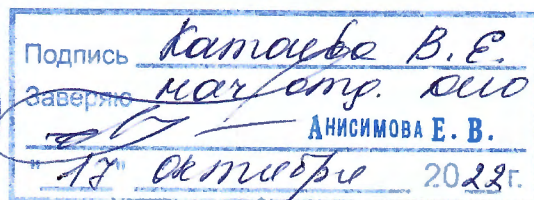 Подпись Катаева В.Е.
Заверяю нач. отд. ОПО
АНИСИМОВА Е. В.
"17" октября 2022г.